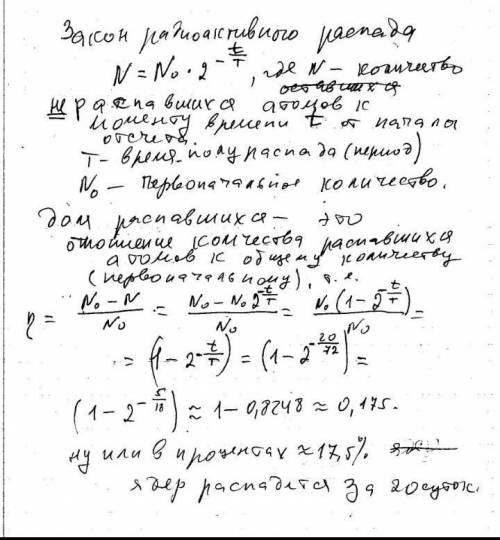 Закон радиоактивного распада
N = N₀ · 2^(-t/T), где N - количество
оставшихся
не распавшихся атомов к
моменту времени t от начала
отсчета.
T - время полураспада (период)
N₀ - Первоначальное количество.
Доля распавшихся - это
отношение количества распавшихся
атомов к общему количеству
(первоначальному), т.е.
η = (N₀ - N)/N₀ = (N₀ - N₀2^(-t/T))/N₀ = N₀(1 - 2^(-t/T))/N₀ =
= (1 - 2^(-t/T)) = (1 - 2^(-20/72)) =
(1 - 2^(-5/18)) ≈ 1 - 0,8248 ≈ 0,175.
ну или в процентах ≈ 17,5%
ядер распадется за 20 суток.